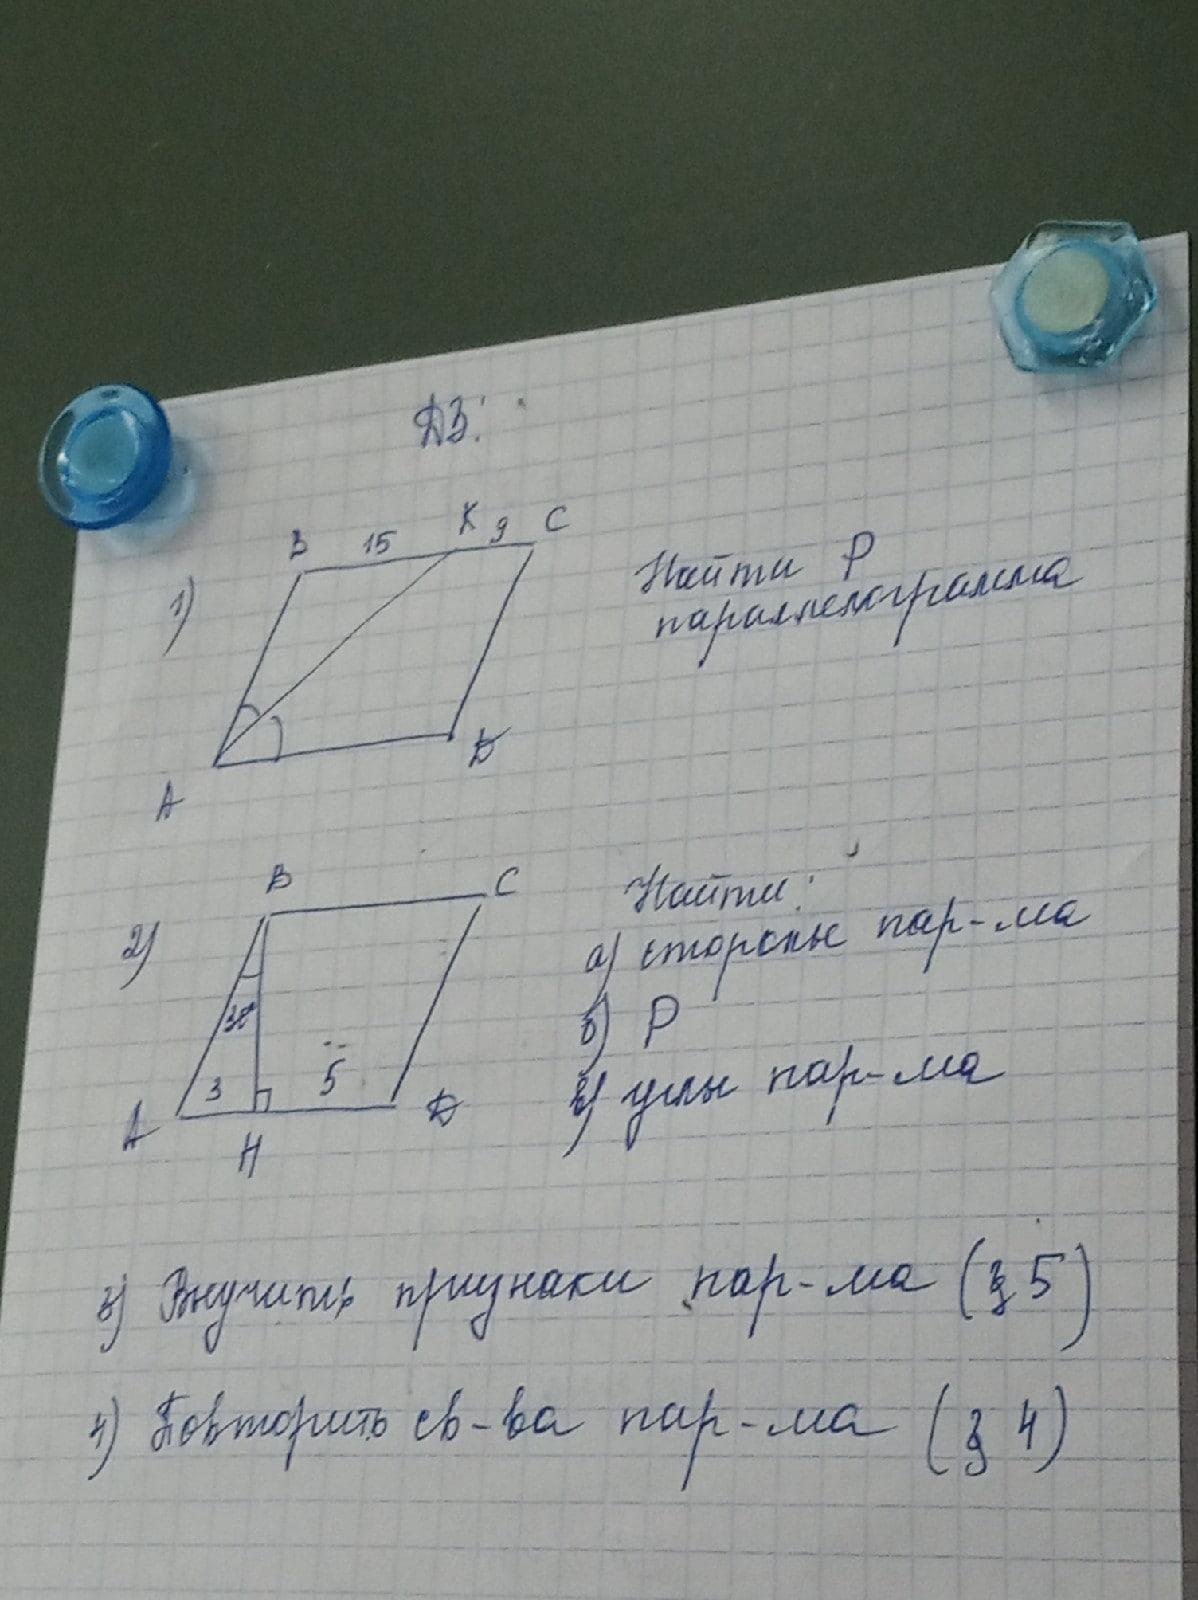 ДЗ:
1)
B 15 K 9 C
A D
Найти P
параллелограмма
2)
B C
30°
3 5
A H D
Найти:
а) стороны пар-ма
б) P
в) углы пар-ма
3) Выучить признаки пар-ма (§ 5)
4) Повторить св-ва пар-ма (§ 4)